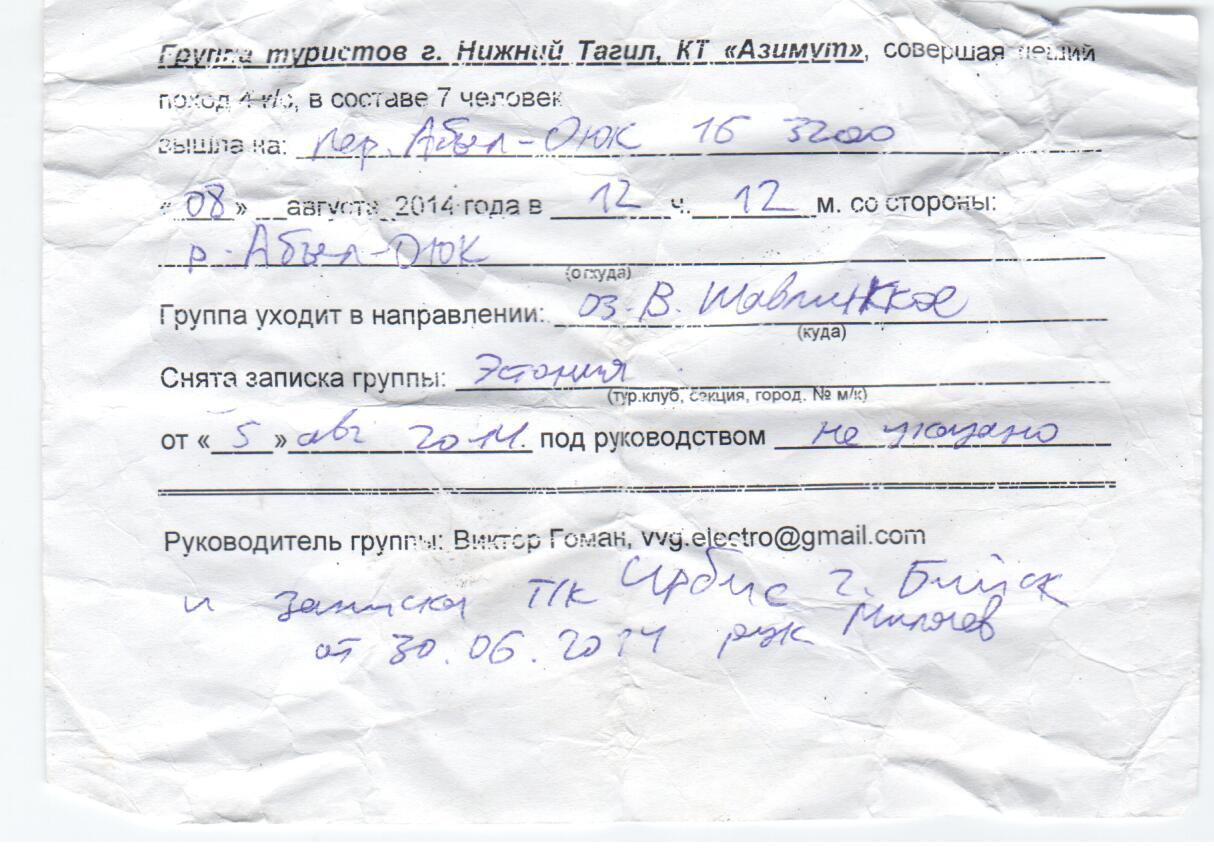 Группа туристов г. Нижний Тагил, КТ «Азимут», совершая пеший
поход 4 к/с, в составе 7 человек
вышла на: пер. Абыл-Оюк 1Б 3200
« 08 » __августа_2014 года в 12 ч. 12 м. со стороны:
р. Абыл-Оюк
(откуда)
Группа уходит в направлении: оз. В. Шавлинское
(куда)
Снята записка группы: Эстония
(тур.клуб, секция, город. № м/к)
от « 5 » авг 2014. под руководством не указано
Руководитель группы: Виктор Гоман, vvg.electro@gmail.com
и записка Т/к Ирбис г. Бийск
от 30.06.2014 рук